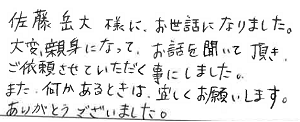 佐藤 岳大 様に、お世話になりました。
大変親身になって、お話を聞いて頂き、
ご依頼させていただく事にしました。
また、何かあるときは、宜しくお願いします。
ありがとうございました。